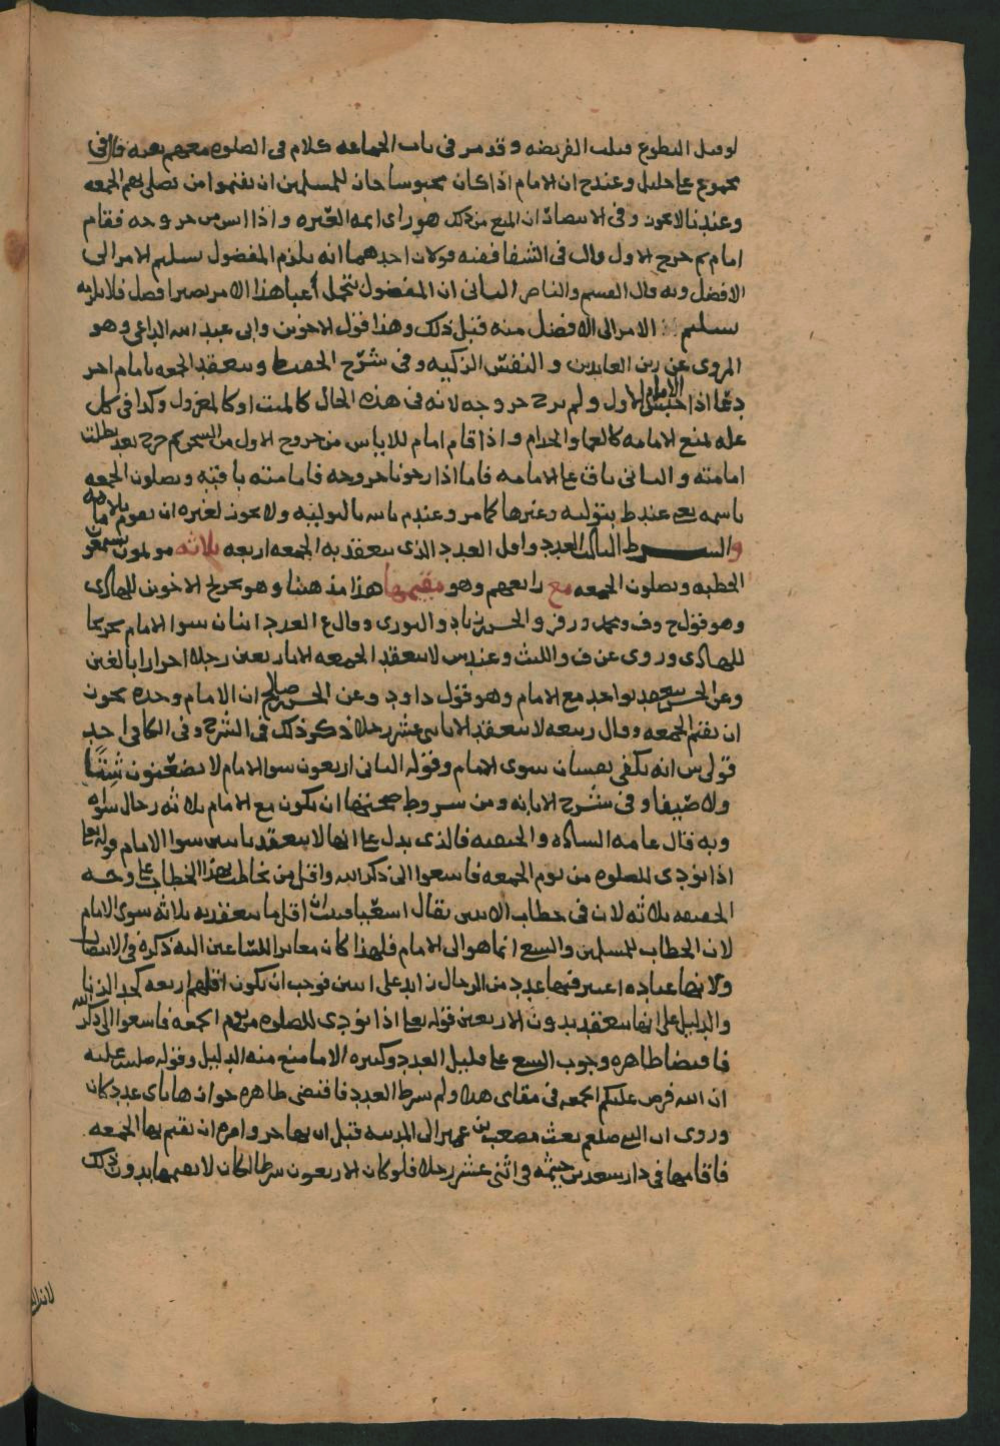 لو فعل التطوع قبلت الفريضه وقد مر في باب الجماعه كلام في الصلوه معهم قال في
مجموع علي خليل وعند ح ان الامام اذا كان محبوسا جاز للمسلمين ان يقيموا من يصلي بهم الجمعه
وعندنا لا يجوز وفي الانتصار ان المنع من ذلك هو راي ايمه العتره واذا ايس من خروجه فقام
امام ثم خرج الاول قال في الشفا ففيه قولان احدهما انه يلزم المفضول تسليم الامر الى
الافضل وبه قال القسم والناصر الثاني ان المفضول بتحمل اعبا هذا الامر يصير افضل فلا يلزمه
تسليم الامر الى الافضل منه قبل ذلك وهذا قول الاخوين وابي عبد الله الداعي وهو
المروي عن زين العابدين والنفس الزكيه وفي شرح وتنعقد الجمعه بامام اخر
دعا اذا حبس الامام الاول ولم يرج خروجه لانه في هذه الحال كالميت او كالمعزول وكذا في كل
عله تمنع الامامه كالعما والجذام واذا قام امام للاياس من خروج الاول من السجن ثم خرج بعد بطلت
امامته والثاني باق على الامامه فاما اذا رجونا خروجه فامامته باقيه ويصلون الجمعه
باسمه عند ط بتوليه وغيرها كما مر وعند م بالله بالتوليه ولا يجوز لغيره ان يقوم بالامامه
والشرط الثالث العدد واقل العدد الذي تنعقد به الجمعه اربعه ثلاثه يسمعون
الخطبه ويصلون الجمعه مع رابعهم وهو مقيمها هذا مذهبنا وهو تخريج الاخوين للهادي
وهو قول ح وف ومحمد وزفر والحسن بن زياد والثوري وقال ع العدد اثنان سوا الامام تخريجا
للهادي وروي عن ف والليث وعند ش لا تنعقد الجمعه الا باربعين رجلا احرارا بالغين
وعن الحسن تنعقد بواحد مع الامام وهو قول داود وعن الحسن بن صالح ان الامام وحده يجوز
ان يقيم الجمعه وقال ربيعه لا تنعقد الا باثني عشر رجلا ذكر ذلك في الشرح وفي الكافي احد
قولي ش انه يكفي سوى الامام وقوله الثاني اربعون سوا الامام لا يضعنون شتاً
ولا صيفا وفي شرح الابانه ومن شروط صحتها ان يكون مع الامام ثلاثه رجال سواه
وبه قال عامه الساده والحنفيه فالذي يدل على انها لا تنعقد باثنين سوا الامام قوله تعالى
اذا نودي للصلوه من يوم الجمعه فاسعوا الى ذكر الله واقل من يخاطب بهذا الخطاب على وجه
الحقيقه ثلاثه لان في خطاب الاثنين يقال اسعيا فثبت ان اقل ما تنعقد به ثلاثه سوى الامام
لان الخطاب للمسلمين والسعي انما هو الى الامام فلهذا كان مغايرا للساعين اليه ذكره في الانتصار
ولانها عباده اعتبر فيها عدد من الرجال زايد على اثنين فوجب ان يكون اقلهم اربعه كحد الزنا
والدليل على انها تنعقد بدون الاربعين قوله تعالى اذا نودي للصلوه من يوم الجمعه فاسعوا الى ذكر الله
فاقتضا ظاهره وجوب السعي على قليل العدد وكثيره الا ما منع منه الدليل وقوله صلى الله عليه
ان الله فرض عليكم الجمعه في مقامي هذا ولم يشرط العدد فاقتضى ظاهره جوازها باي عدد كان
وروي ان النبي صلعم بعث مصعب بن عمير الى المدينه قبل ان يهاجر وامره ان يقيم بها الجمعه
فاقامها في دار سعد بن خيثمه في اثنى عشر رجلا فلو كان الاربعون شرطا لكان لا يقيمها بدون ذلك